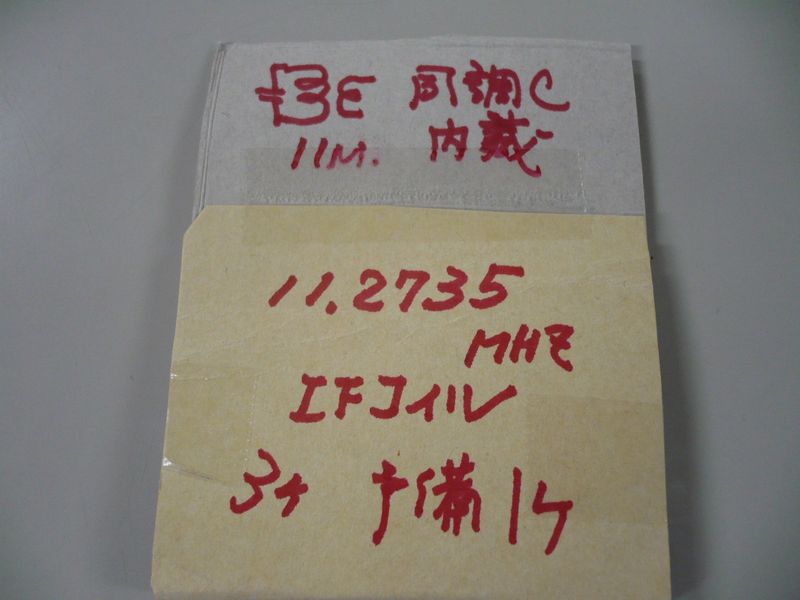 同調C
11M. 内蔵
11.2735
MHZ
IFコイル
3ケ 予備 1ケ